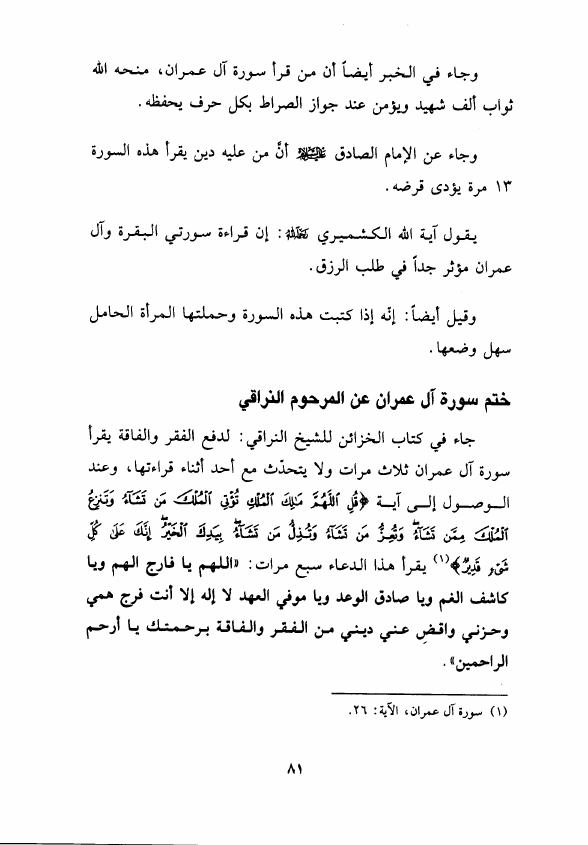 وجاء في الخبر أيضاً أن من قرأ سورة آل عمران، منحه الله
ثواب ألف شهيد ويؤمن عند جواز الصراط بكل حرف يحفظه.
وجاء عن الإمام الصادق عليه السلام أنَّ من عليه دين يقرأ هذه السورة
١٣ مرة يؤدى قرضه.
يقول آية الله الكشميري رحمه الله: إن قراءة سورتي البقرة وآل
عمران مؤثر جداً في طلب الرزق.
وقيل أيضاً: إنّه إذا كتبت هذه السورة وحملتها المرأة الحامل
سهل وضعها.
ختم سورة آل عمران عن المرحوم النراقي
جاء في كتاب الخزائن للشيخ النراقي: لدفع الفقر والفاقة يقرأ
سورة آل عمران ثلاث مرات ولا يتحدّث مع أحد أثناء قراءتها، وعند
الوصول إلى آية ﴿قُلِ اللَّهُمَّ مَٰلِكَ الْمُلْكِ تُؤْتِي الْمُلْكَ مَن تَشَآءُ وَتَنزِعُ
الْمُلْكَ مِمَّن تَشَآءُ وَتُعِزُّ مَن تَشَآءُ وَتُذِلُّ مَن تَشَآءُ بِيَدِكَ الْخَيْرُ إِنَّكَ عَلَىٰ كُلِّ
شَيْءٍ قَدِيرٌ﴾(١) يقرأ هذا الدعاء سبع مرات: «اللهم يا فارج الهم ويا
كاشف الغم ويا صادق الوعد ويا موفي العهد لا إله إلا أنت فرج همي
وحزني واقضِ عني ديني من الفقر والفاقة برحمتك يا أرحم
الراحمين».
(١) سورة آل عمران، الآية: ٢٦.
٨١